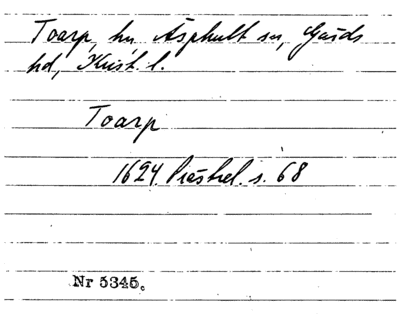 Toarp, hn, Äsphult sn, Gärds
hd, Krist. l.
Toarp
1624 Prästrel. s. 68
Nr 5345.